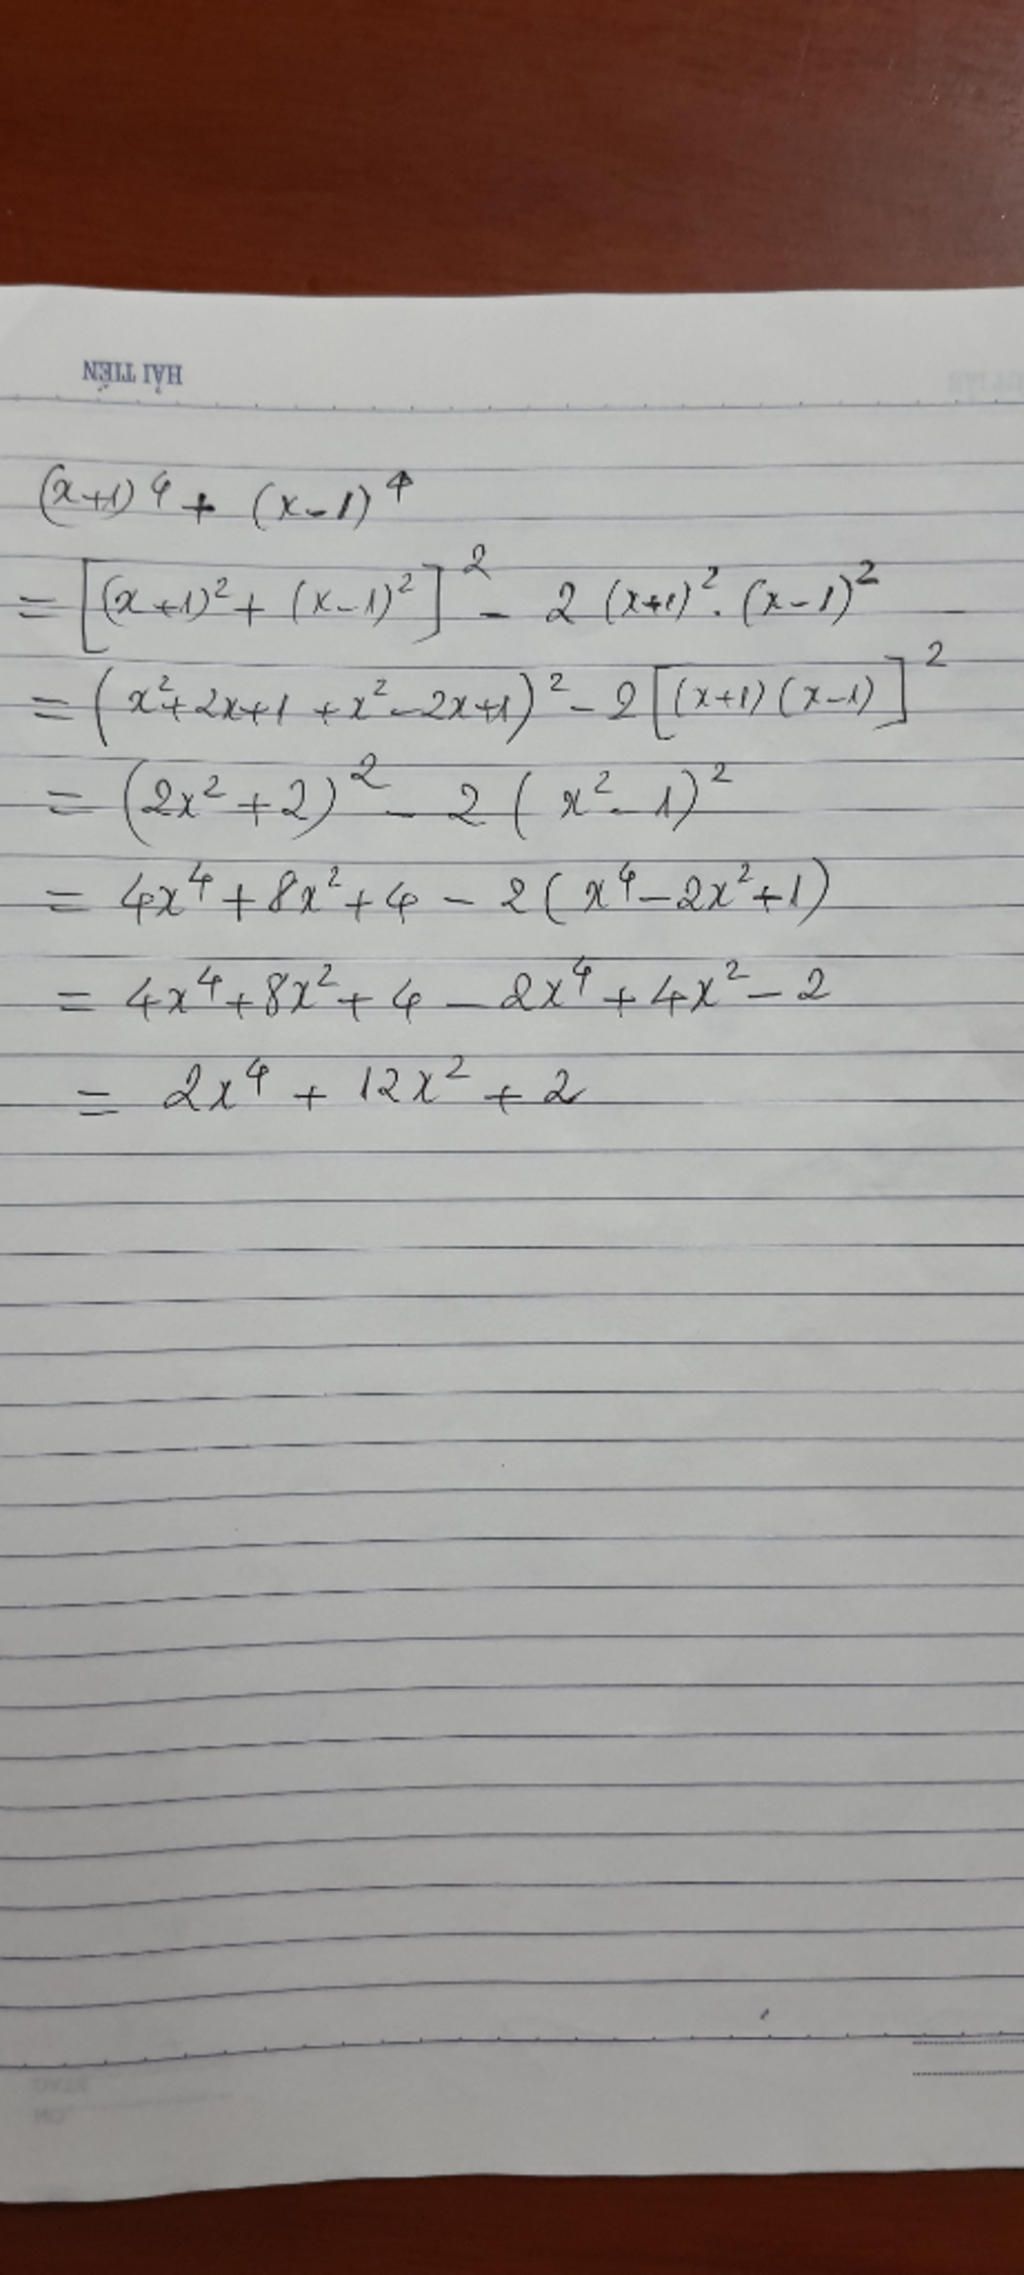 HẢI TIẾN
(x+1)⁴ + (x-1)⁴
= [(x+1)² + (x-1)²]² - 2 (x+1)² . (x-1)²
= (x²+2x+1+x²-2x+1)² - 2[(x+1)(x-1)]²
= (2x²+2)² - 2(x²-1)²
= 4x⁴+8x²+4 - 2(x⁴-2x²+1)
= 4x⁴+8x²+4 - 2x⁴+4x²-2
= 2x⁴ + 12x² + 2